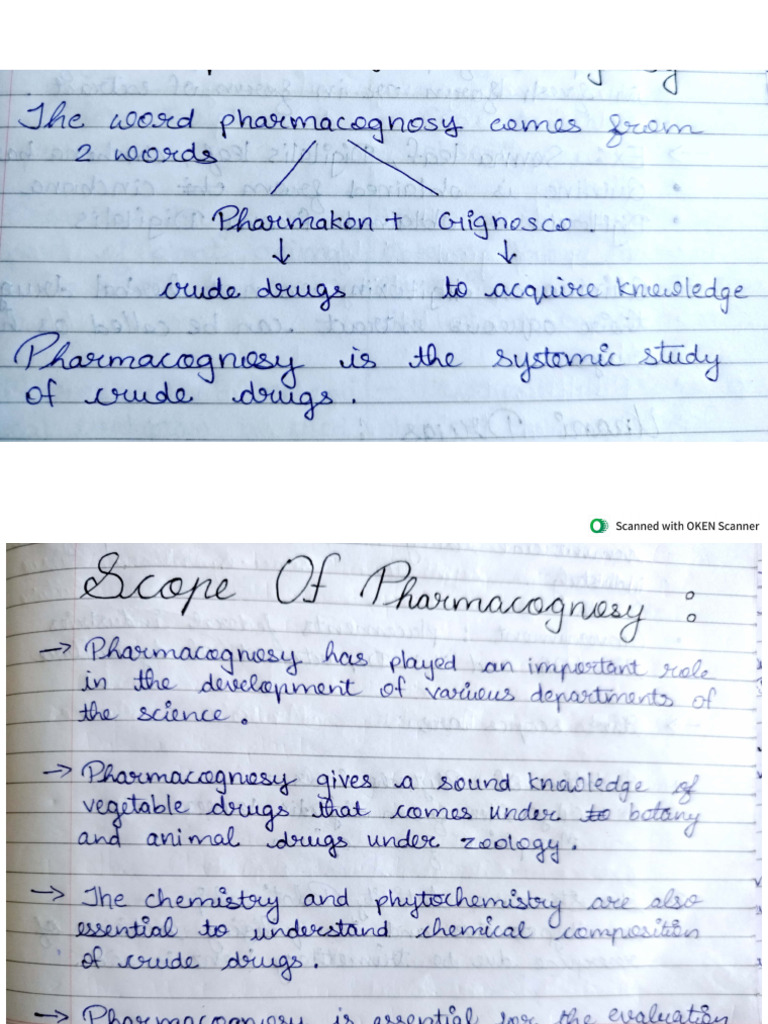 The word pharmacognosy comes from
2 words
Pharmakon + Gignosco.
crude drugs to acquire knowledge
Pharmacognosy is the systemic study
of crude drugs.
Scanned with OKEN Scanner
Scope Of Pharmacognosy :
→ Pharmacognosy has played an important role
in the development of various departments of
the science.
→ Pharmacognosy gives a sound knowledge of
vegetable drugs that comes under to botany
and animal drugs under zoology.
→ The chemistry and phytochemistry are also
essential to understand chemical composition
of crude drugs.
→ Pharmacognosy is essential for the evaluation